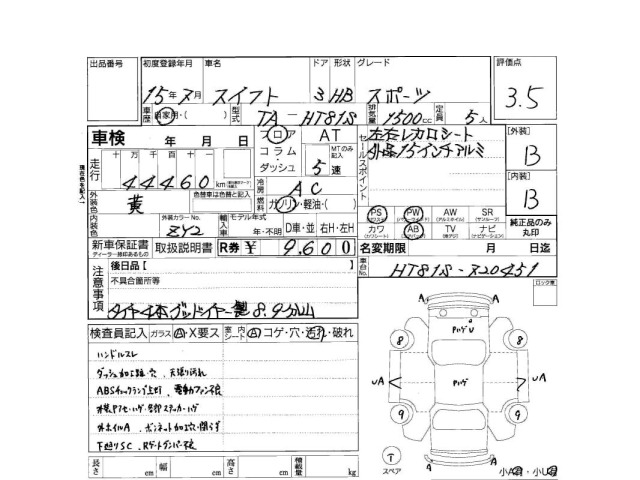 出品番号 初度登録年月 車名 ドア 形状 グレード 評価点
15年 7月 スイフト 3 HB スポーツ 3.5
車歴 自家用・( ) 型式 TA - HT81S 排気量 1500cc 定員 5人
車検 年 月 日 フロア コラム・ダッシュ AT MTのみ記入 5速
セールスポイント 左右レカロシート
外品15インチアルミ
[外装] B
[内装] B
走行 十万 万 千 百 十 一
44460 km
冷房 AC
燃料 ガソリン・軽油・( )
外装色 黄 色替車は色替と記入
内装色 外装カラーNo. ZY2 輸入車 モデル年式 年・不明 D車・並 右H・左H
PS PW AW SR
カワ AB TV ナビ
純正品のみ丸印
新車保証書 取扱説明書 R券 ¥ 9,600
ディーラー捺印あるもの
名変期限 月 日迄
車台No. HT81S-720451
ロック車
注意事項 後日品 [ ]
不具合箇所等
タイヤ4本グッドイヤー製8.9分山
検査員記入 ガラス A・X要ス 室内シート A コゲ・穴・汚れ・破れ
ハンドルスレ
ダッシュ加工跡・穴、天張り汚れ
ABSチェックランプ上灯、電動ファン不良
外ホイルA、ボンネット加工穴・閉らず
下廻りSC、Rゲートダンパー不良
長さ cm 幅 cm 高さ cm 積載量 kg
A A
8 8
Pハゲ U
Pハゲ
UA UA
9 9
A A
T
スペア
現在色を記入